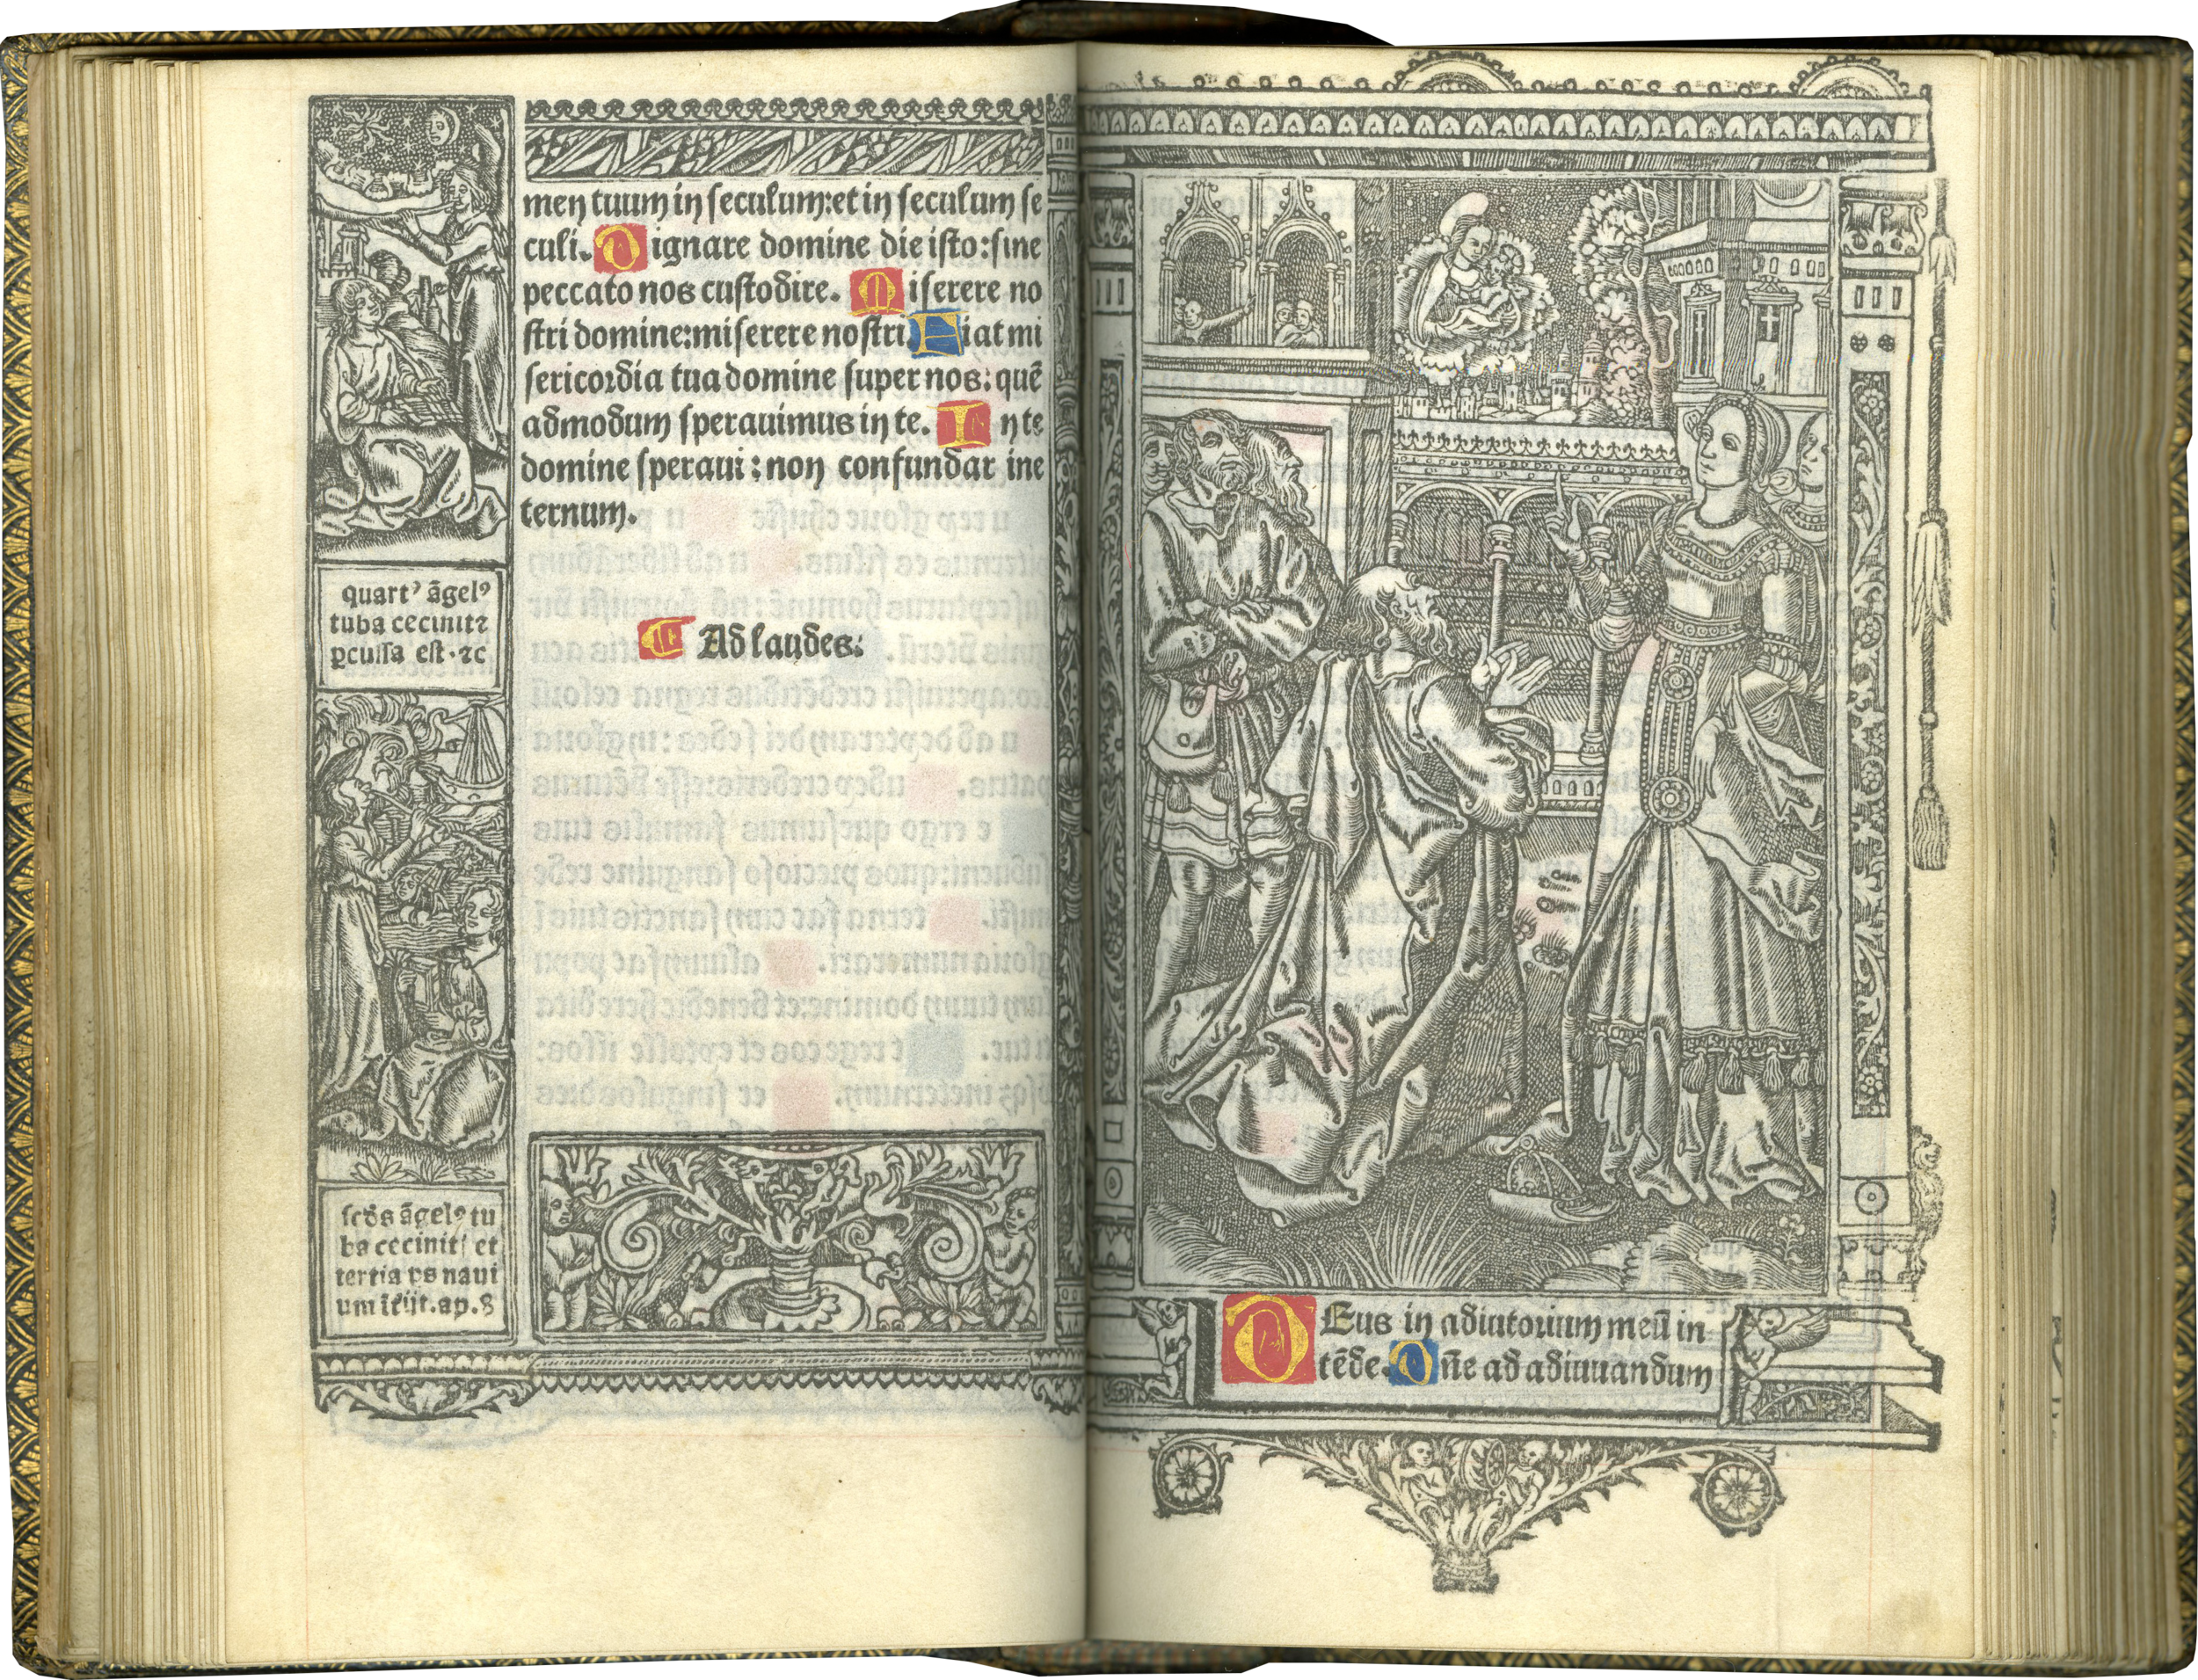 men tuum in seculum: et in seculum se
culi. Dignare domine die isto: sine
peccato nos custodire. Miserere no
stri domine: miserere nostri. Fiat mi
sericordia tua domine super nos: quē
admodum speravimus in te. In te
domine speravi: non confundar ine
ternum.
Ad laudes:
quartꝰ āgelꝰ
tuba cecinit ⁊
ꝑcussa est. ⁊c
scd̄s āgelꝰ tu
ba cecinit/ et
tertia ps navi
um īt̄iit. ap. 8
DEus in adiutorium meū in
tēde. Dn̄e ad adiuvandum